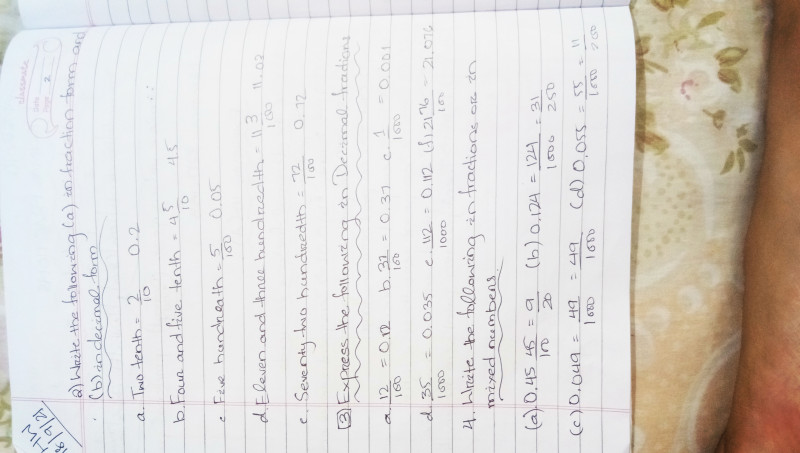 classmate
Date
Page 2
H.W
2) Write the following (a) in fraction form and
(b) in decimal form
a. Two tenth = 2/10 0.2
b. Four and five tenth = 4 5/10 45
c Five hundreath = 5/100 0.05
d. Eleven and three hundredth = 11 3/100 11.02
e. Seventy two hundredth = 72/100 0.72
3 Express the following in Decimal fractions
a. 12/100 = 0.12 b. 37/100 = 0.37 c 1/1000 = 0.001
d. 35/1000 = 0.035 e. 112/1000 = 0.112 (f) 2176/100 = 21.076
4. Write the following in fractions or in
mixed numbers
(a) 0.45 45/100 = 9/20 (b) 0.124 = 124/1000 = 31/250
(c) 0.049 = 49/1000 = 49/1000 (d) 0.055 = 55/1000 = 11/200